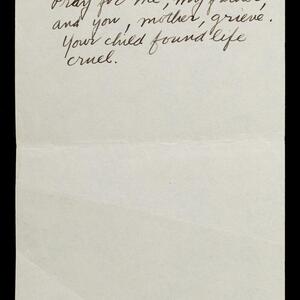 Pray for me, my father,
and you, mother, grieve.
Your child found life
cruel.